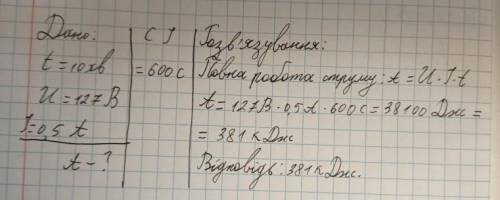 Дано:
t=10хв
U=127В
I=0,5 А
А-?
СІ
=600с
Розв'язування:
Повна робота струму: А = U·I·t
А = 127В·0,5А·600с=38100 Дж =
= 381 кДж
Відповідь: 381 кДж.